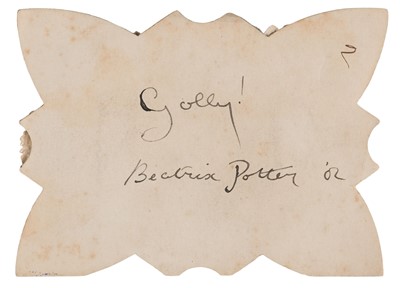 2
Golly!
Beatrix Potter '02